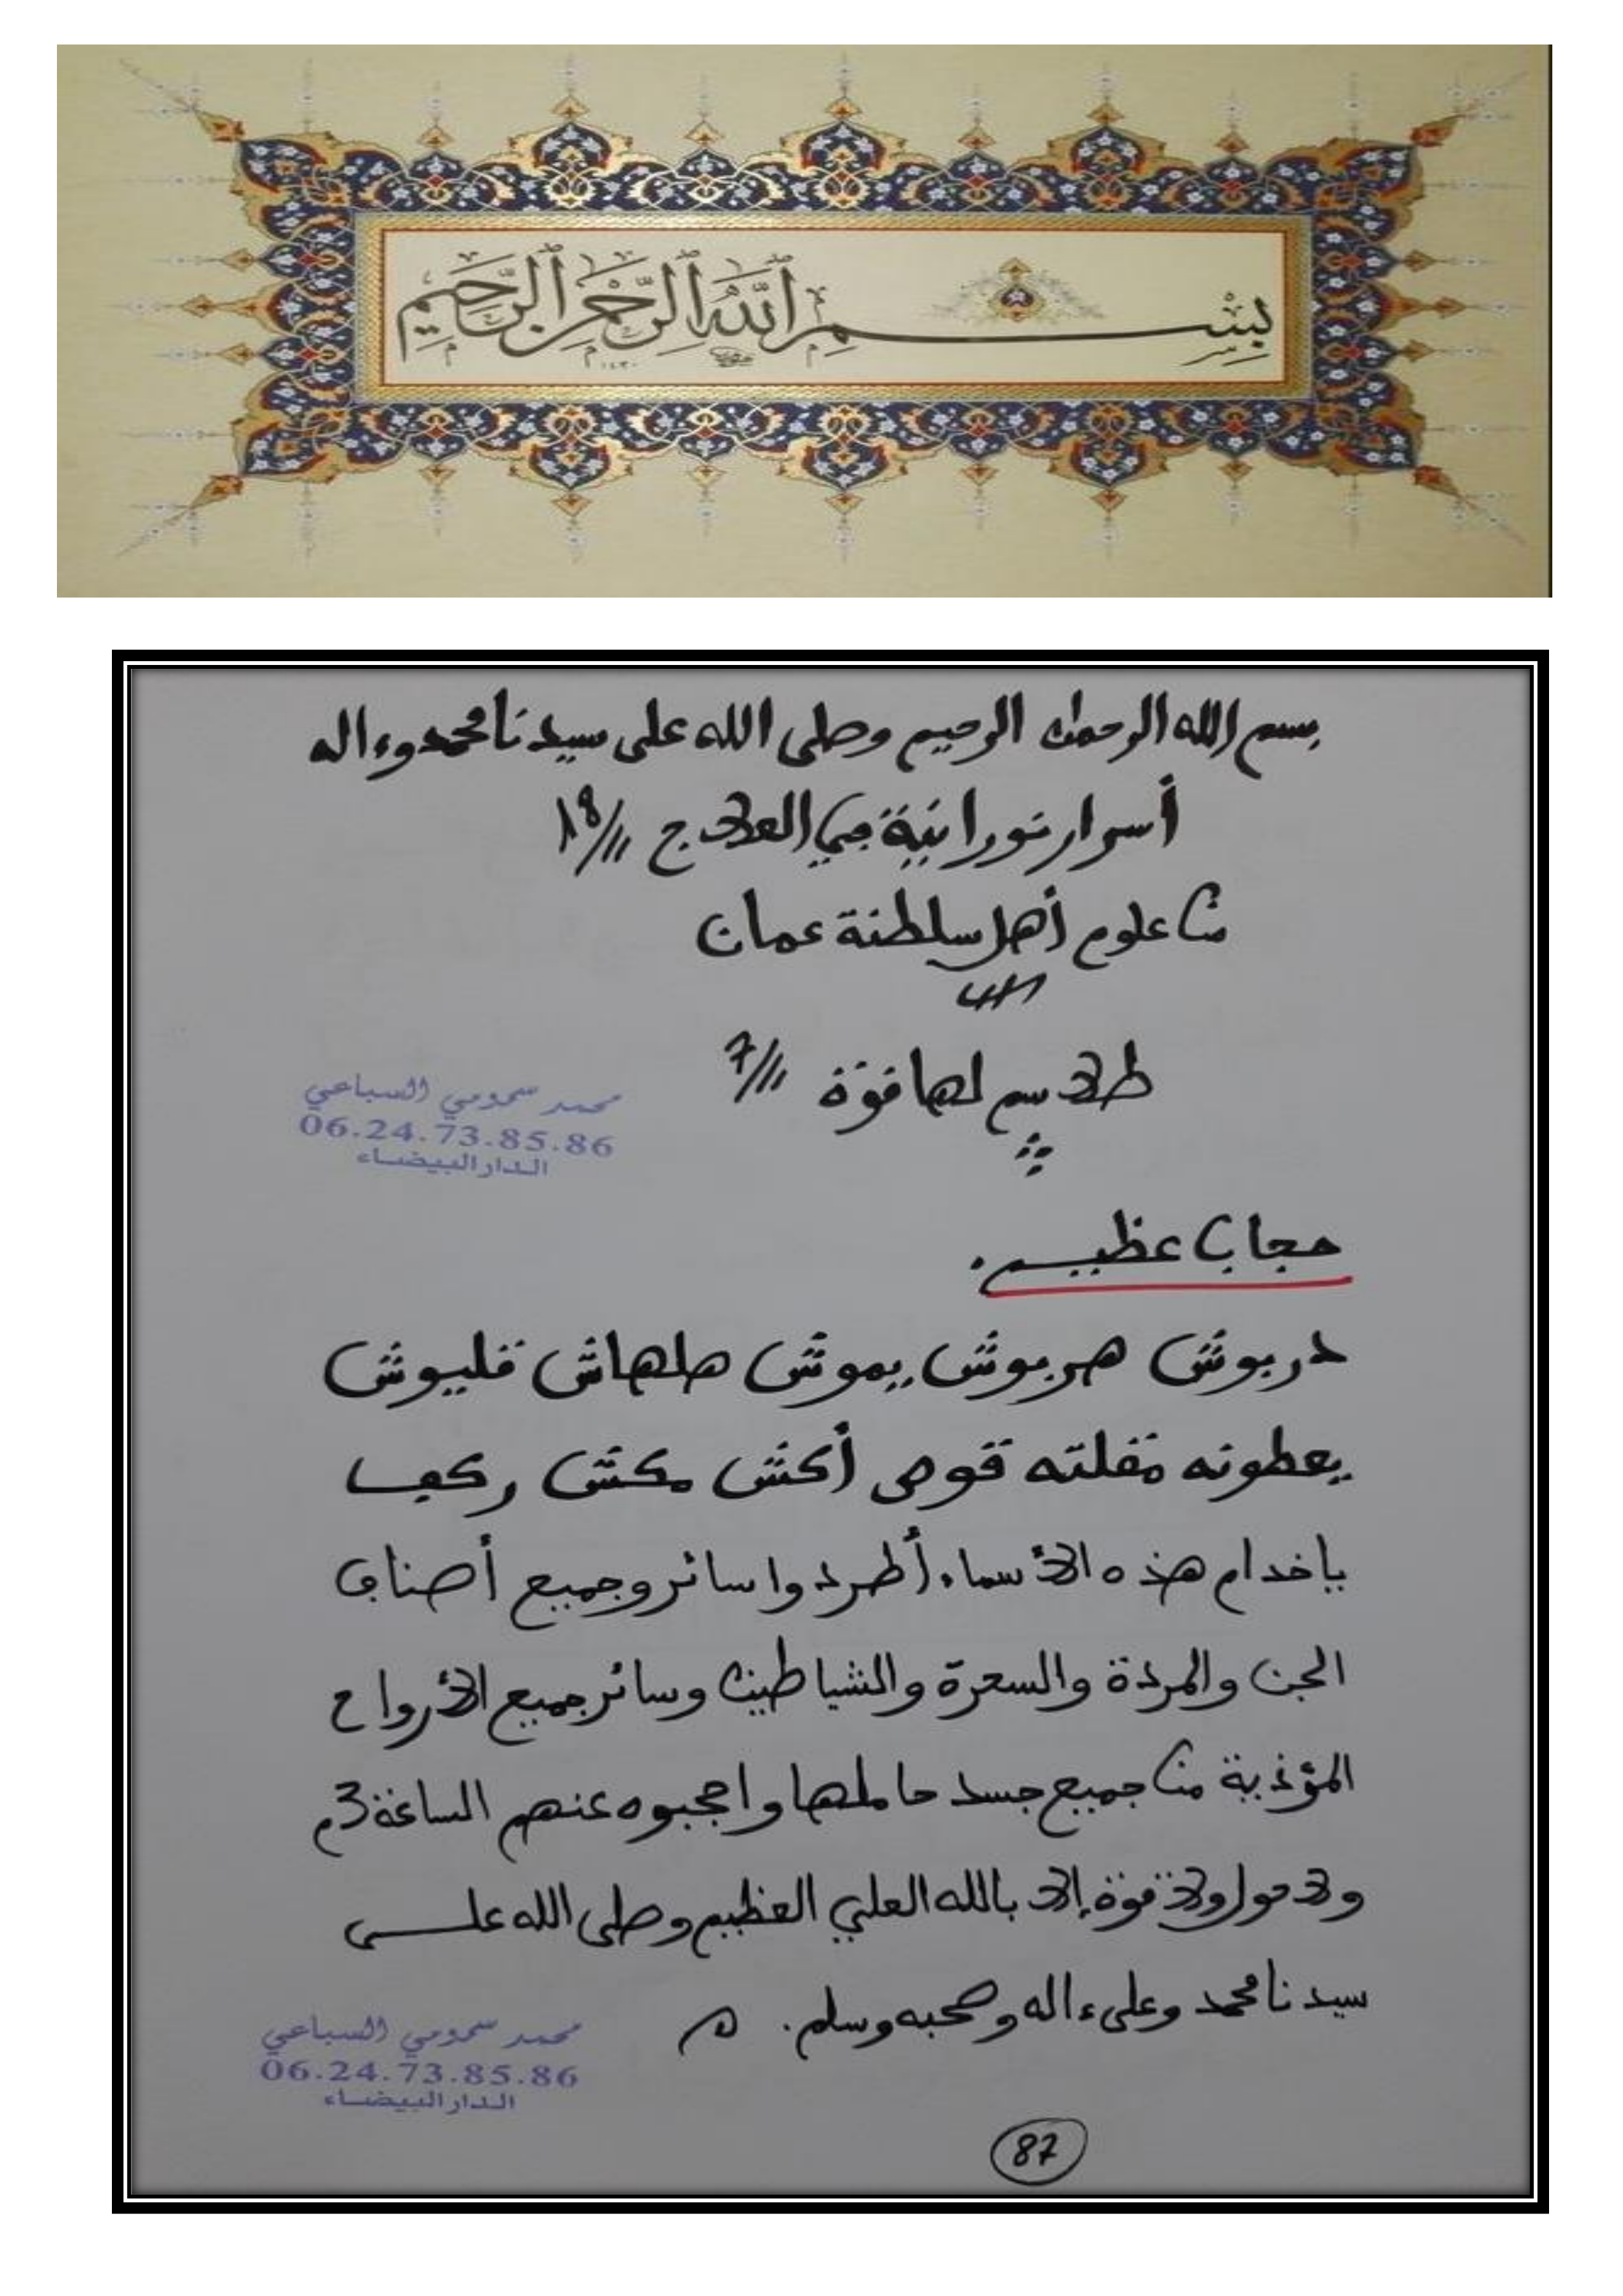 بِسْمِ ٱللَّهِ ٱلرَّحْمَٰنِ ٱلرَّحِيمِ
١٤٣٠
بسم الله الرحمان الرحيم وصلى الله على سيدنا محمد وءاله
أسرار نورانية في العلاج
من علوم أهل سلطنة عمان
طلاسم لها قوة
محمد سمومي السباعي
06.24.73.85.86
الدار البيضاء
حجاب عظيم.
دربوش هربوش يموش هلهاش قليوش
يعطونه تفلته قوص أكش مكش ركيب
ياخدام هذه الأسماء أطردوا سائر وجميع أصناف
الجن والمردة والسحرة والشياطين وسائر جميع الأرواح
المؤذية من جميع جسد حاملها واحجبوه عنهم الساعة 3م
ولا حول ولا قوة إلا بالله العلي العظيم وصلى الله على
سيدنا محمد وعلى ءاله وصحبه وسلم.
محمد سمومي السباعي
06.24.73.85.86
الدار البيضاء
87